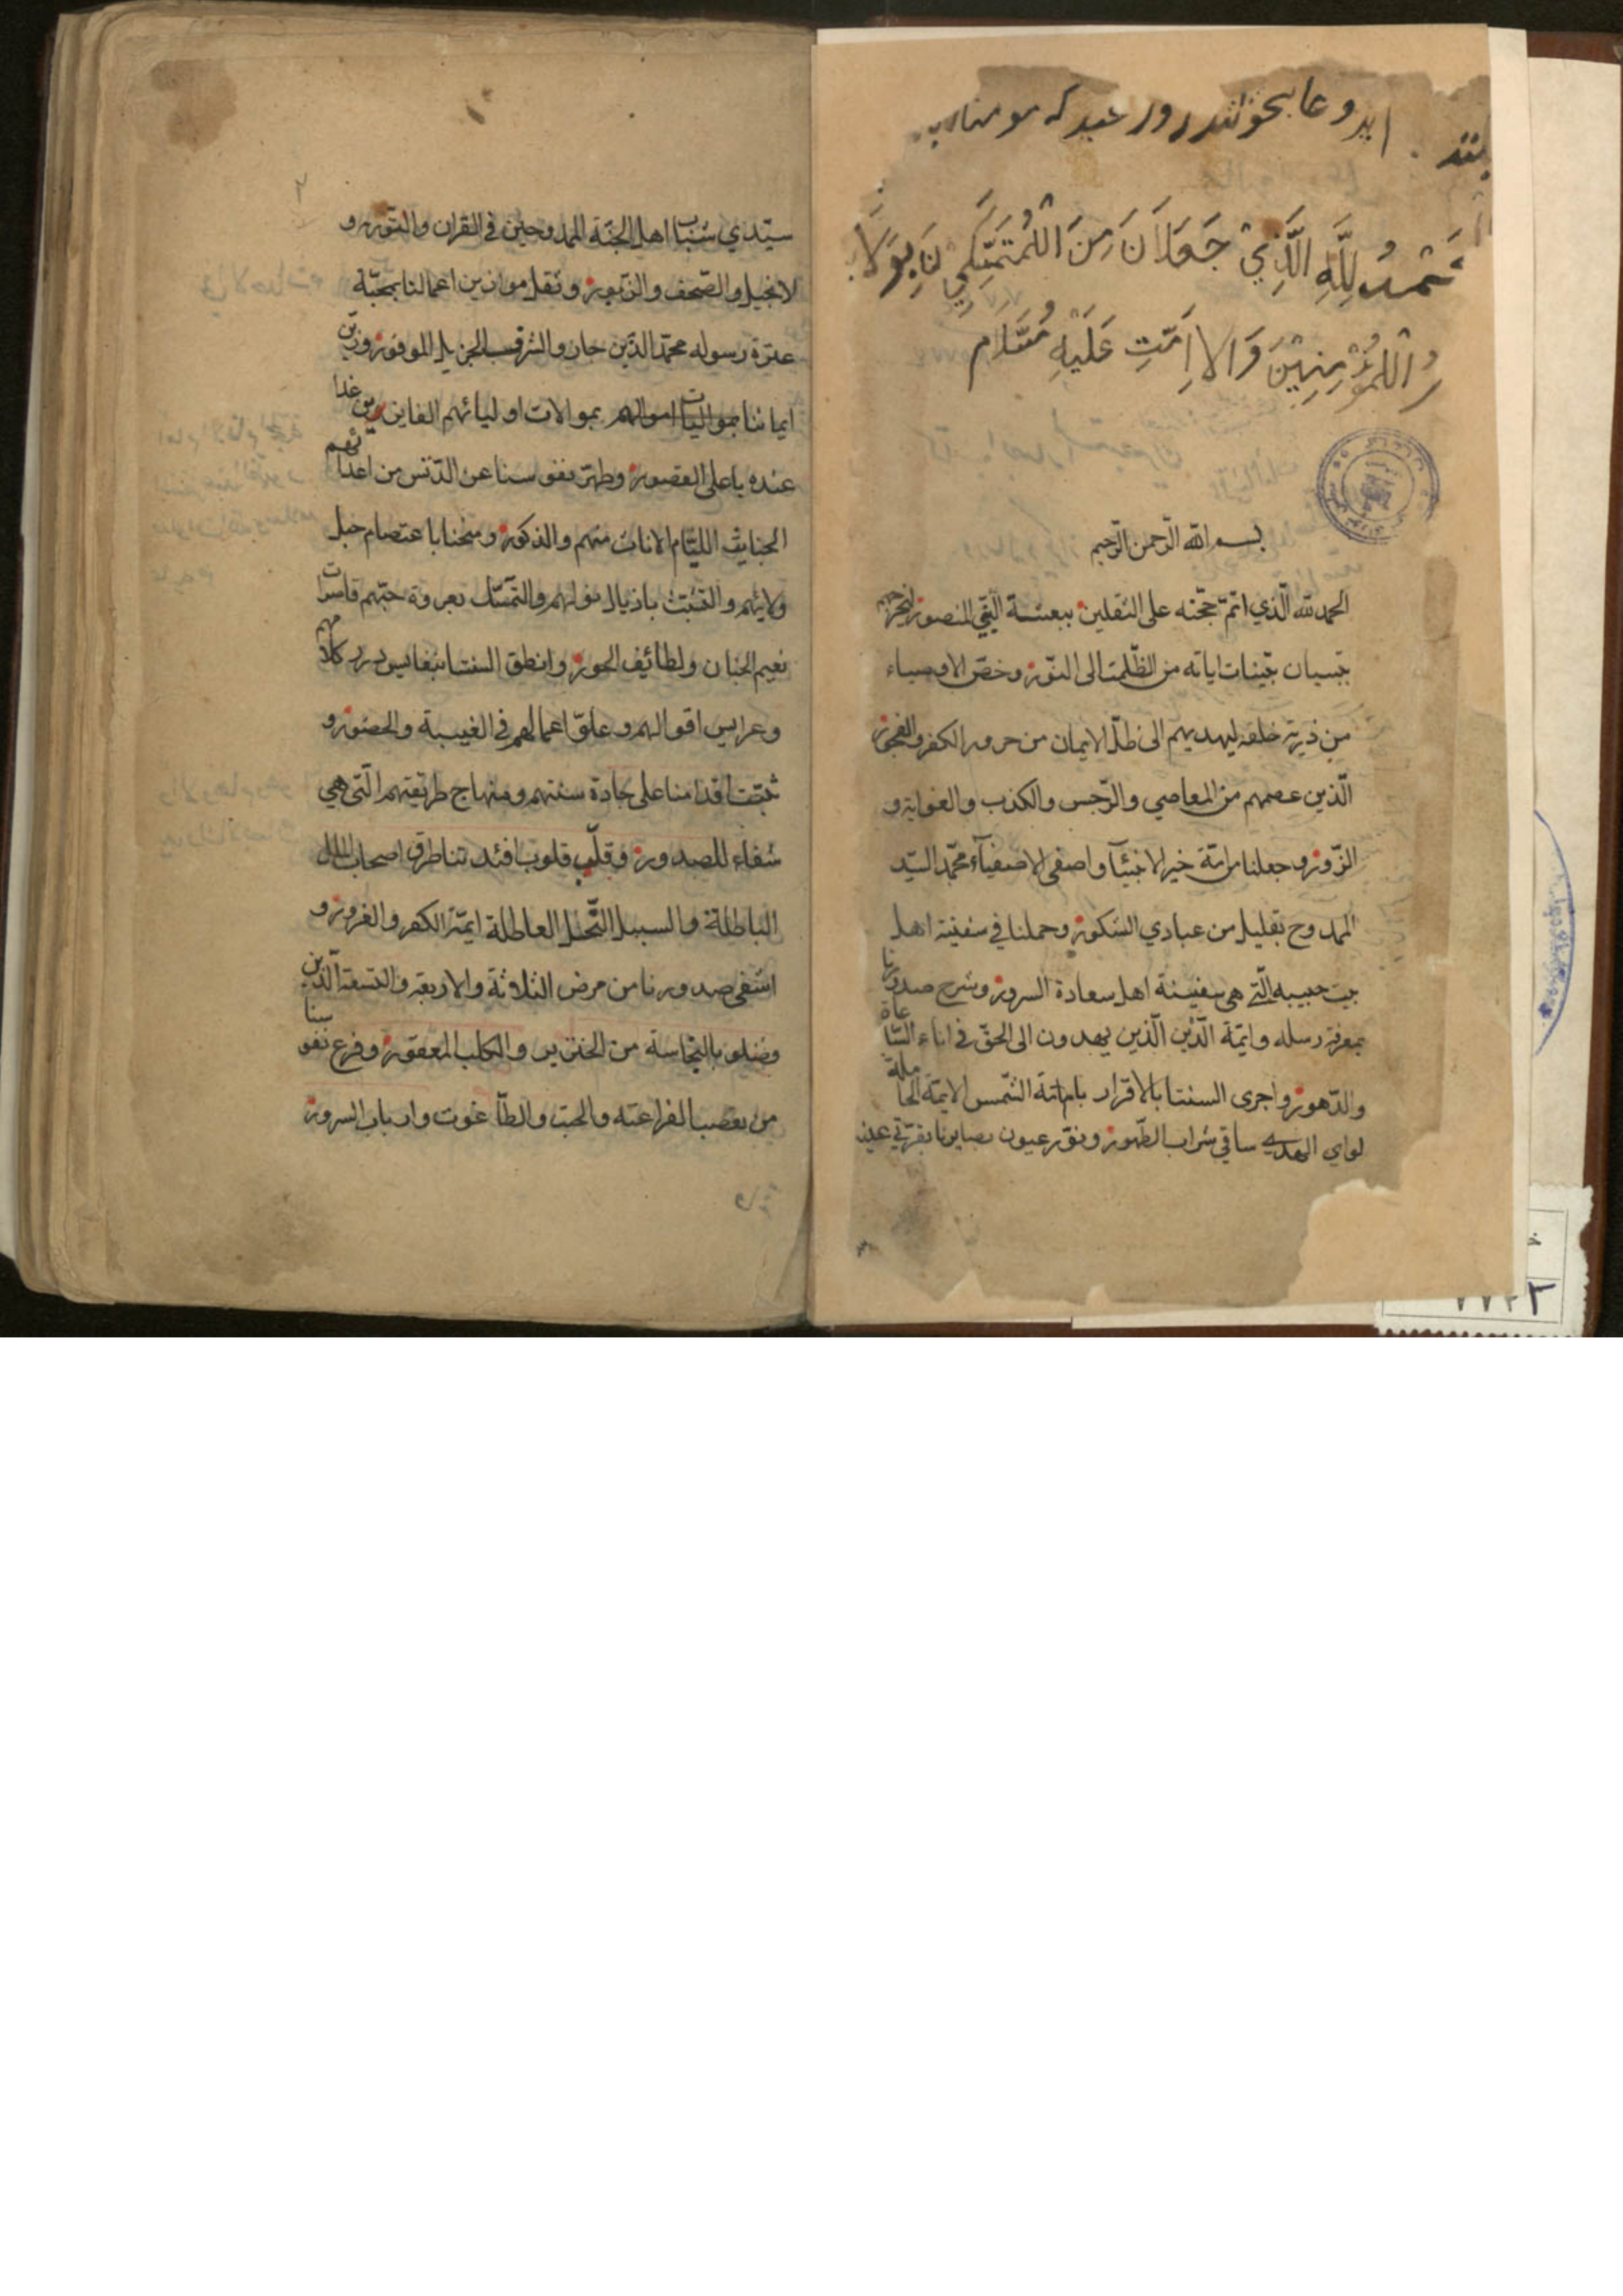 دعا بخوانند روز عید که مومنان
الحمد لله الذي جعلنا من المتمسكين بولا
المؤمنين والا عليه
بسم الله الرّحمن الرّحيم
الحمد لله الّذي اتمّ حجّته على الثقلين ببعثة النّبيّ المنصور
بتبيان بيّنات اياته من الظّلمت الى النّور وخصّ الاوصياء
من ذرية خلقه ليهديهم الى ظلّ الايمان من حرور الكفر والفجور
الّذين عصمهم من المعاصي والرّجس والكذب والغواية و
الزّور وجعلنا من امّة خير الانبيآء واصفى الاصفيآء محمّد السيّد
الممدوح بقليل من عبادي الشكور وحملنا في سفينة اهل
بيت حبيبه الّتي هي سفينة اهل سعادة السرور وشرح صدورنا
بمعرفة رسله وايمّة الدّين الّذين يهدون الى الحقّ في اناء السّاعاة
والدّهور واجرى السنتنا بالاقرار بامامة الشّمس الايمّة الحاملة
لواي الهدى ساقي شراب الطّهور ونوّر عيون بصايرنا بقرّتي عين
سيّدي شباب اهل الجنّة الممدوحين في القران والتّورية و
لانجيل والصّحف والزّبور وثقل موازين اعمالنا بمحبّة
عترة رسوله محمّد الذّين حازو الشرف الجزيل الموفور وزيّن
ايماننا بموالات اوليائهم الفايزين غدا
عنده باعلى القصور وطهّر نفوسنا عن الدّنس من اعدائهم
الخبايث الليّام الاناث منهم والذكور ومنحنا باعتصام حبل
ولايتهم والتشبّث باذيال والتمسّك بعروة حبّهم
نعيم الجنان ولطائيف الحور وانطق السنتنا بنفايس درر كلامهم
وعرايس اقوالهم و اعمالهم في الغيبة والحضور و
ثبّت اقدامنا على جادة سنتهم ومنهاج طريقتهم الّتي هي
شفاء للصدور وقلّب قلوب افئدتنا طرق اصحاب الملل
الباطلة والسبيل النّحل العاطلة ايمّة الكفر والغرور و
اشفى صدورنا من مرض الثلاثة والاربعة والتسعة الّذين
وفضلو بالنّجاسة من الخنزير والكلب المعقور وفرغ نفوسنا
من الفراعنه والجبت والطّاغوت وارباب السرور